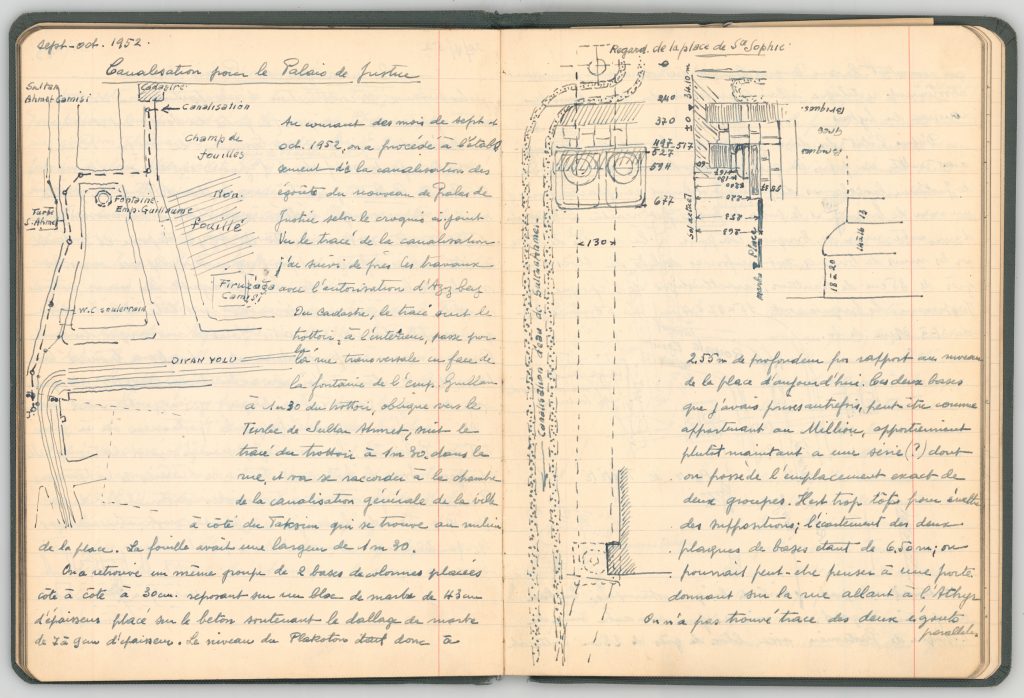 Sept-oct. 1952.
Canalisation pour le Palais de Justice
Sultan
Ahmet Camisi
Cadastre
Canalisation
Champ de
fouilles
Fontaine
Emp. Guillaume
Non
fouillé
Turbe
S. Ahmet
Firuzağa
Camisi
W.C souterrain
DIVAN YOLU
Au courant des mois de sept et
oct. 1952, on a procédé à l'établis
sement de la canalisation des
égouts du nouveau de Palais de
Justice selon le croquis ci-joint
Vu le tracé de la canalisation
j'ai suivi de près les travaux
avec l'autorisation d'Aziz bey
Du cadastre, le tracé suit le
trottoir, à l'intérieur, passe par
la rue transversale en face de
la fontaine de l'emp. Guillau
à 1m30 du trottoir, oblique vers le
Turbe de Sultan Ahmet, suit le
tracé du trottoir à 1m30. dans la
rue, et va se raccorder à la chambre
de la canalisation générale de la ville
à côté du Taksim qui se trouve au milieu
de la place. La fouille avait une largeur de 1m30.
On a retrouvé un même groupe de 2 bases de colonnes placées
côte à côte à 30cm. reposant sur un bloc de marbre de 43cm
d'épaisseur placé sur le béton soutenant le dallage de marbre
de 7 à 9cm d'épaisseur. Le niveau du Plakoton était donc à
Regard de la place de Ste Sophie
0
240
370
497
517
527
594
677
130
Canalisation d'eau de Sultan Ahmet
34.10 m
±0
Briques
Briques
sol actuel
220
255
268
marbre Place
18 à 20
14 à 16
13
2.55 m de profondeur par rapport au niveau
de la place d'aujourd'hui. Ces deux bases
que j'avais prises autrefois, peut-être comme
appartenant au Million, appartiennent
plutôt maintenant à une série (?) dont
on possède l'emplacement exact de
deux groupes. Il est trop tôt pour émettre
des suppositions; l'écartement des deux
plaques de bases étant de 6.50 m; on
pourrait peut-être penser à une porte
donnant sur la rue allant à l'Athyr
On n'a pas trouvé trace des deux égouts
parallèles.